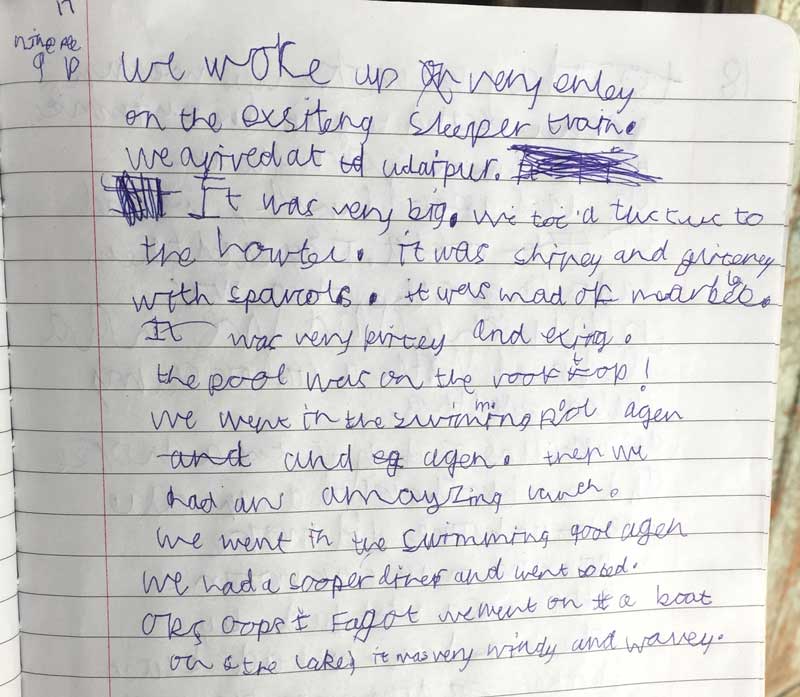 17
we woke up very enley
on the exsiteng sleeper train.
we arived at udaipur.
It was very big. we a tuctuc to
the howtel. it was shiney and gliteney
with sparcols. it was mad of marble.
It was very pritey and exting.
the pool was on the roof top!
we went in the swimming pool agen
and and agen. then we
had an amayzing lunch.
we went in the swimming pool agen
we had a sooper diner and went to bed.
oops I Fagot we went on a boat
on the lake, it was very windy and wavey.